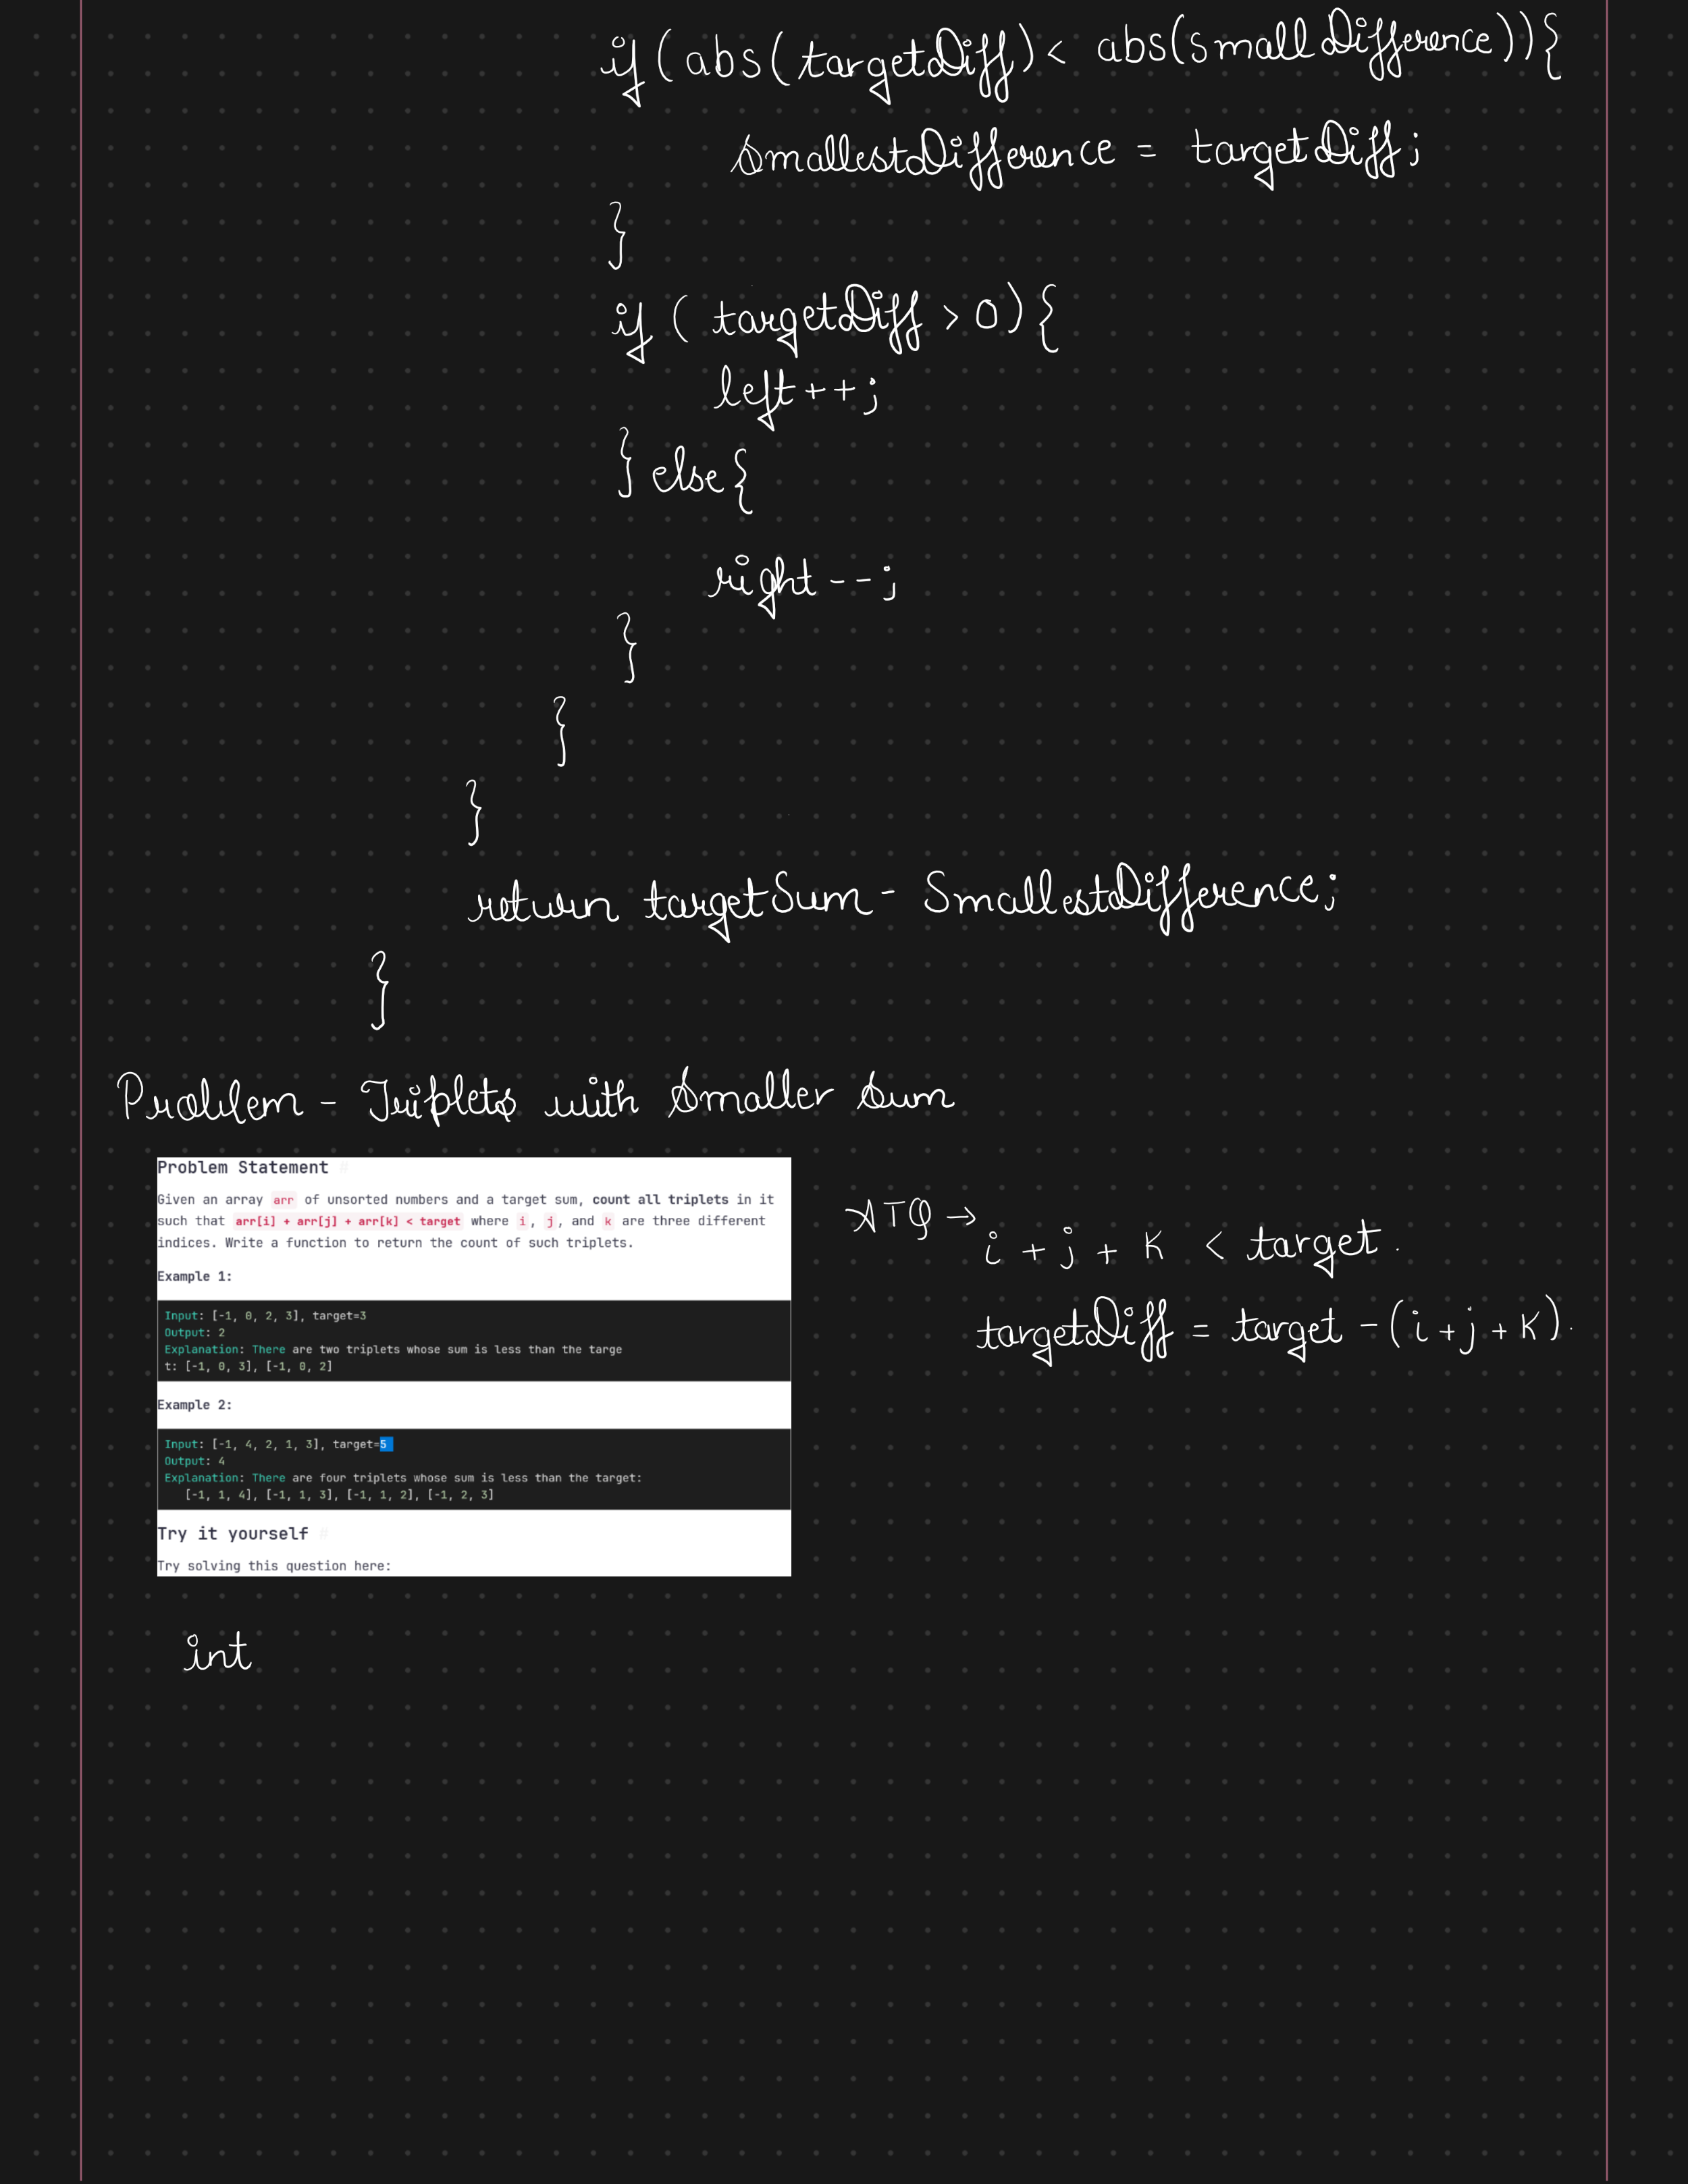 if (abs(targetDiff) < abs(smallDifference)){
smallestDifference = targetDiff;
}
if ( targetDiff > 0) {
left++;
} else {
right--;
}
}
}
return targetSum - SmallestDifference;
}
Problem - Triplets with Smaller Sum
Problem Statement #
Given an array arr of unsorted numbers and a target sum, count all triplets in it
such that arr[i] + arr[j] + arr[k] < target where i, j, and k are three different
indices. Write a function to return the count of such triplets.
Example 1:
Input: [-1, 0, 2, 3], target=3
Output: 2
Explanation: There are two triplets whose sum is less than the targe
t: [-1, 0, 3], [-1, 0, 2]
Example 2:
Input: [-1, 4, 2, 1, 3], target=5
Output: 4
Explanation: There are four triplets whose sum is less than the target:
[-1, 1, 4], [-1, 1, 3], [-1, 1, 2], [-1, 2, 3]
Try it yourself #
Try solving this question here:
ATQ →
i + j + K < target.
targetDiff = target - (i + j + K).
int